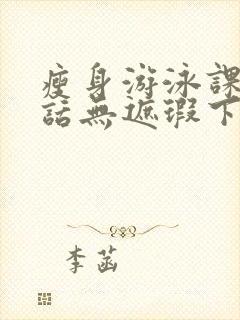 瘦身游泳課
話無遮瑕下
李菡